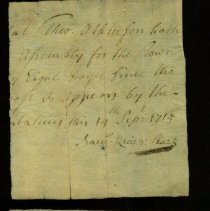 at Theo: Atkinson hath
Assembly for the Town
y Eight Days Since the
as appears by the
this 14th Sept. 1715
Saml. Clark